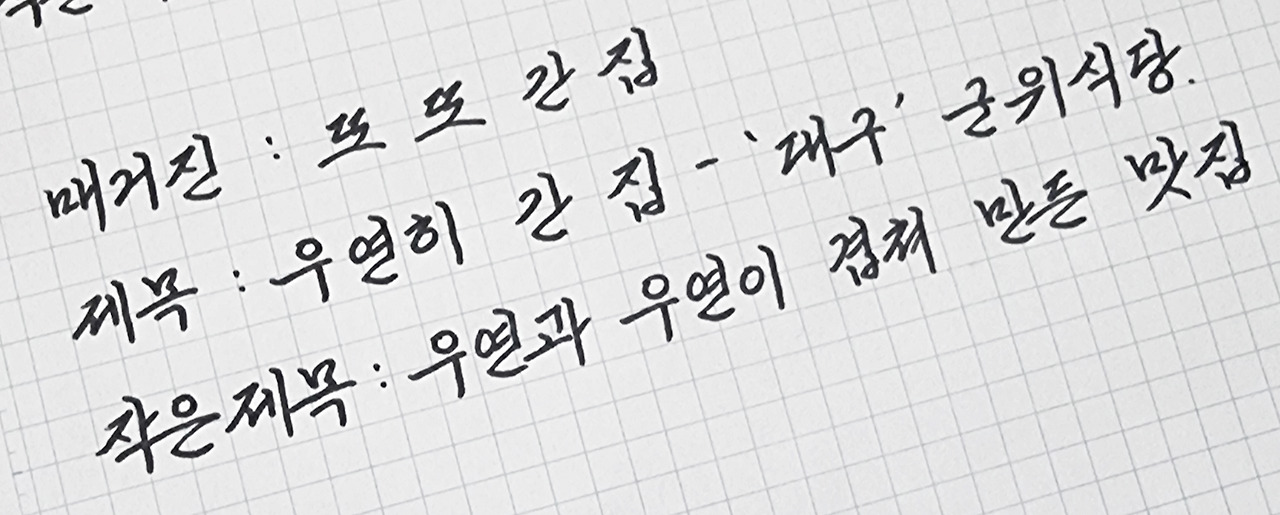 매거진 : 또 또 간 집
제목 : 우연히 간 집 - '대구' 군위식당.
작은제목 : 우연과 우연이 겹쳐 만든 맛집